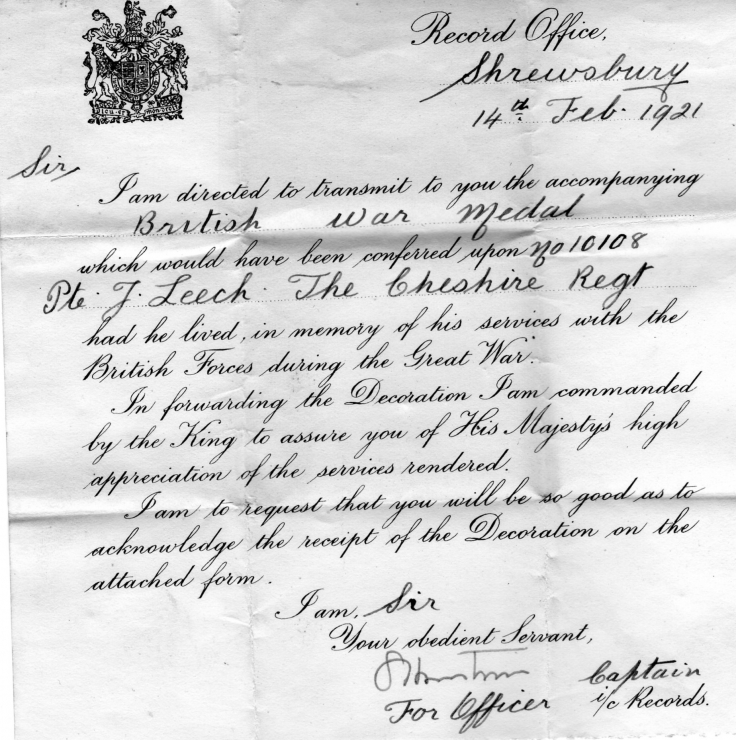 Record Office,
Shrewsbury
14th Feb. 1921
Sir
I am directed to transmit to you the accompanying
British War Medal
which would have been conferred upon No 10108
Pte. J. Leech. The Cheshire Regt
had he lived, in memory of his services with the
British Forces during the Great War.
In forwarding the Decoration I am commanded
by the King to assure you of His Majesty's high
appreciation of the services rendered.
I am to request that you will be so good as to
acknowledge the receipt of the Decoration on the
attached form.
I am, Sir
Your obedient Servant,
Captain
For Officer i/c Records.